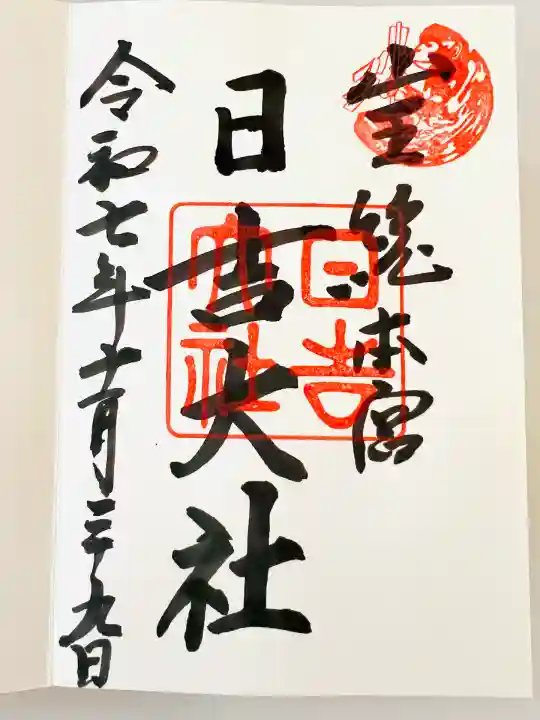 山王
総本宮
日吉大社
日吉
大社
令和七年十一月二十九日